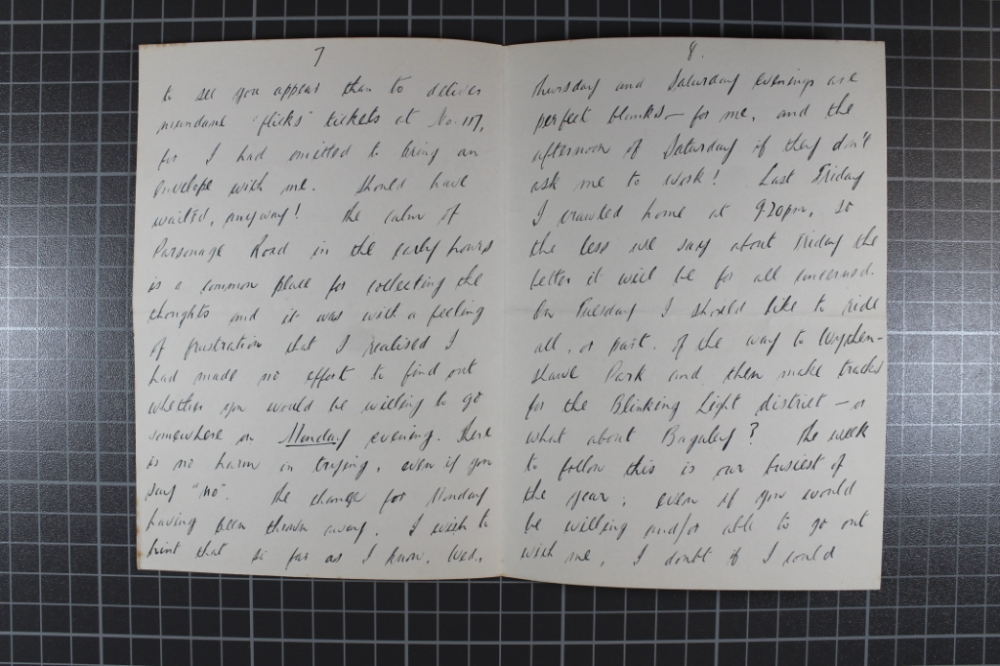 7
to see you appear than to deliver
mundane "flicks" tickets at No. 117,
for I had omitted to bring an
envelope with me. Should have
waited, anyway! The calm of
Parsonage Road in the early hours
is a common place for collecting the
thoughts and it was with a feeling
of frustration that I realised I
had made no effort to find out
whether you would be willing to go
somewhere on Monday evening. There
is no harm in trying, even if you
say "no". The change for Monday
having been thrown away, I wish to
hint that so far as I know, Wed.,
8.
Thursday and Saturday evenings are
perfect blanks - for me, and the
afternoon of Saturday if they don't
ask me to work! Last Friday
I crawled home at 9.20pm, so
the less we say about Friday the
better it will be for all concerned.
On Tuesday I should like to ride
all, or part, of the way to Wythen-
shawe Park and then make tracks
for the Blinking Light district - or
what about Baguley? The week
to follow this is our busiest of
the year; even if you would
be willing and/or able to go out
with me, I doubt if I could